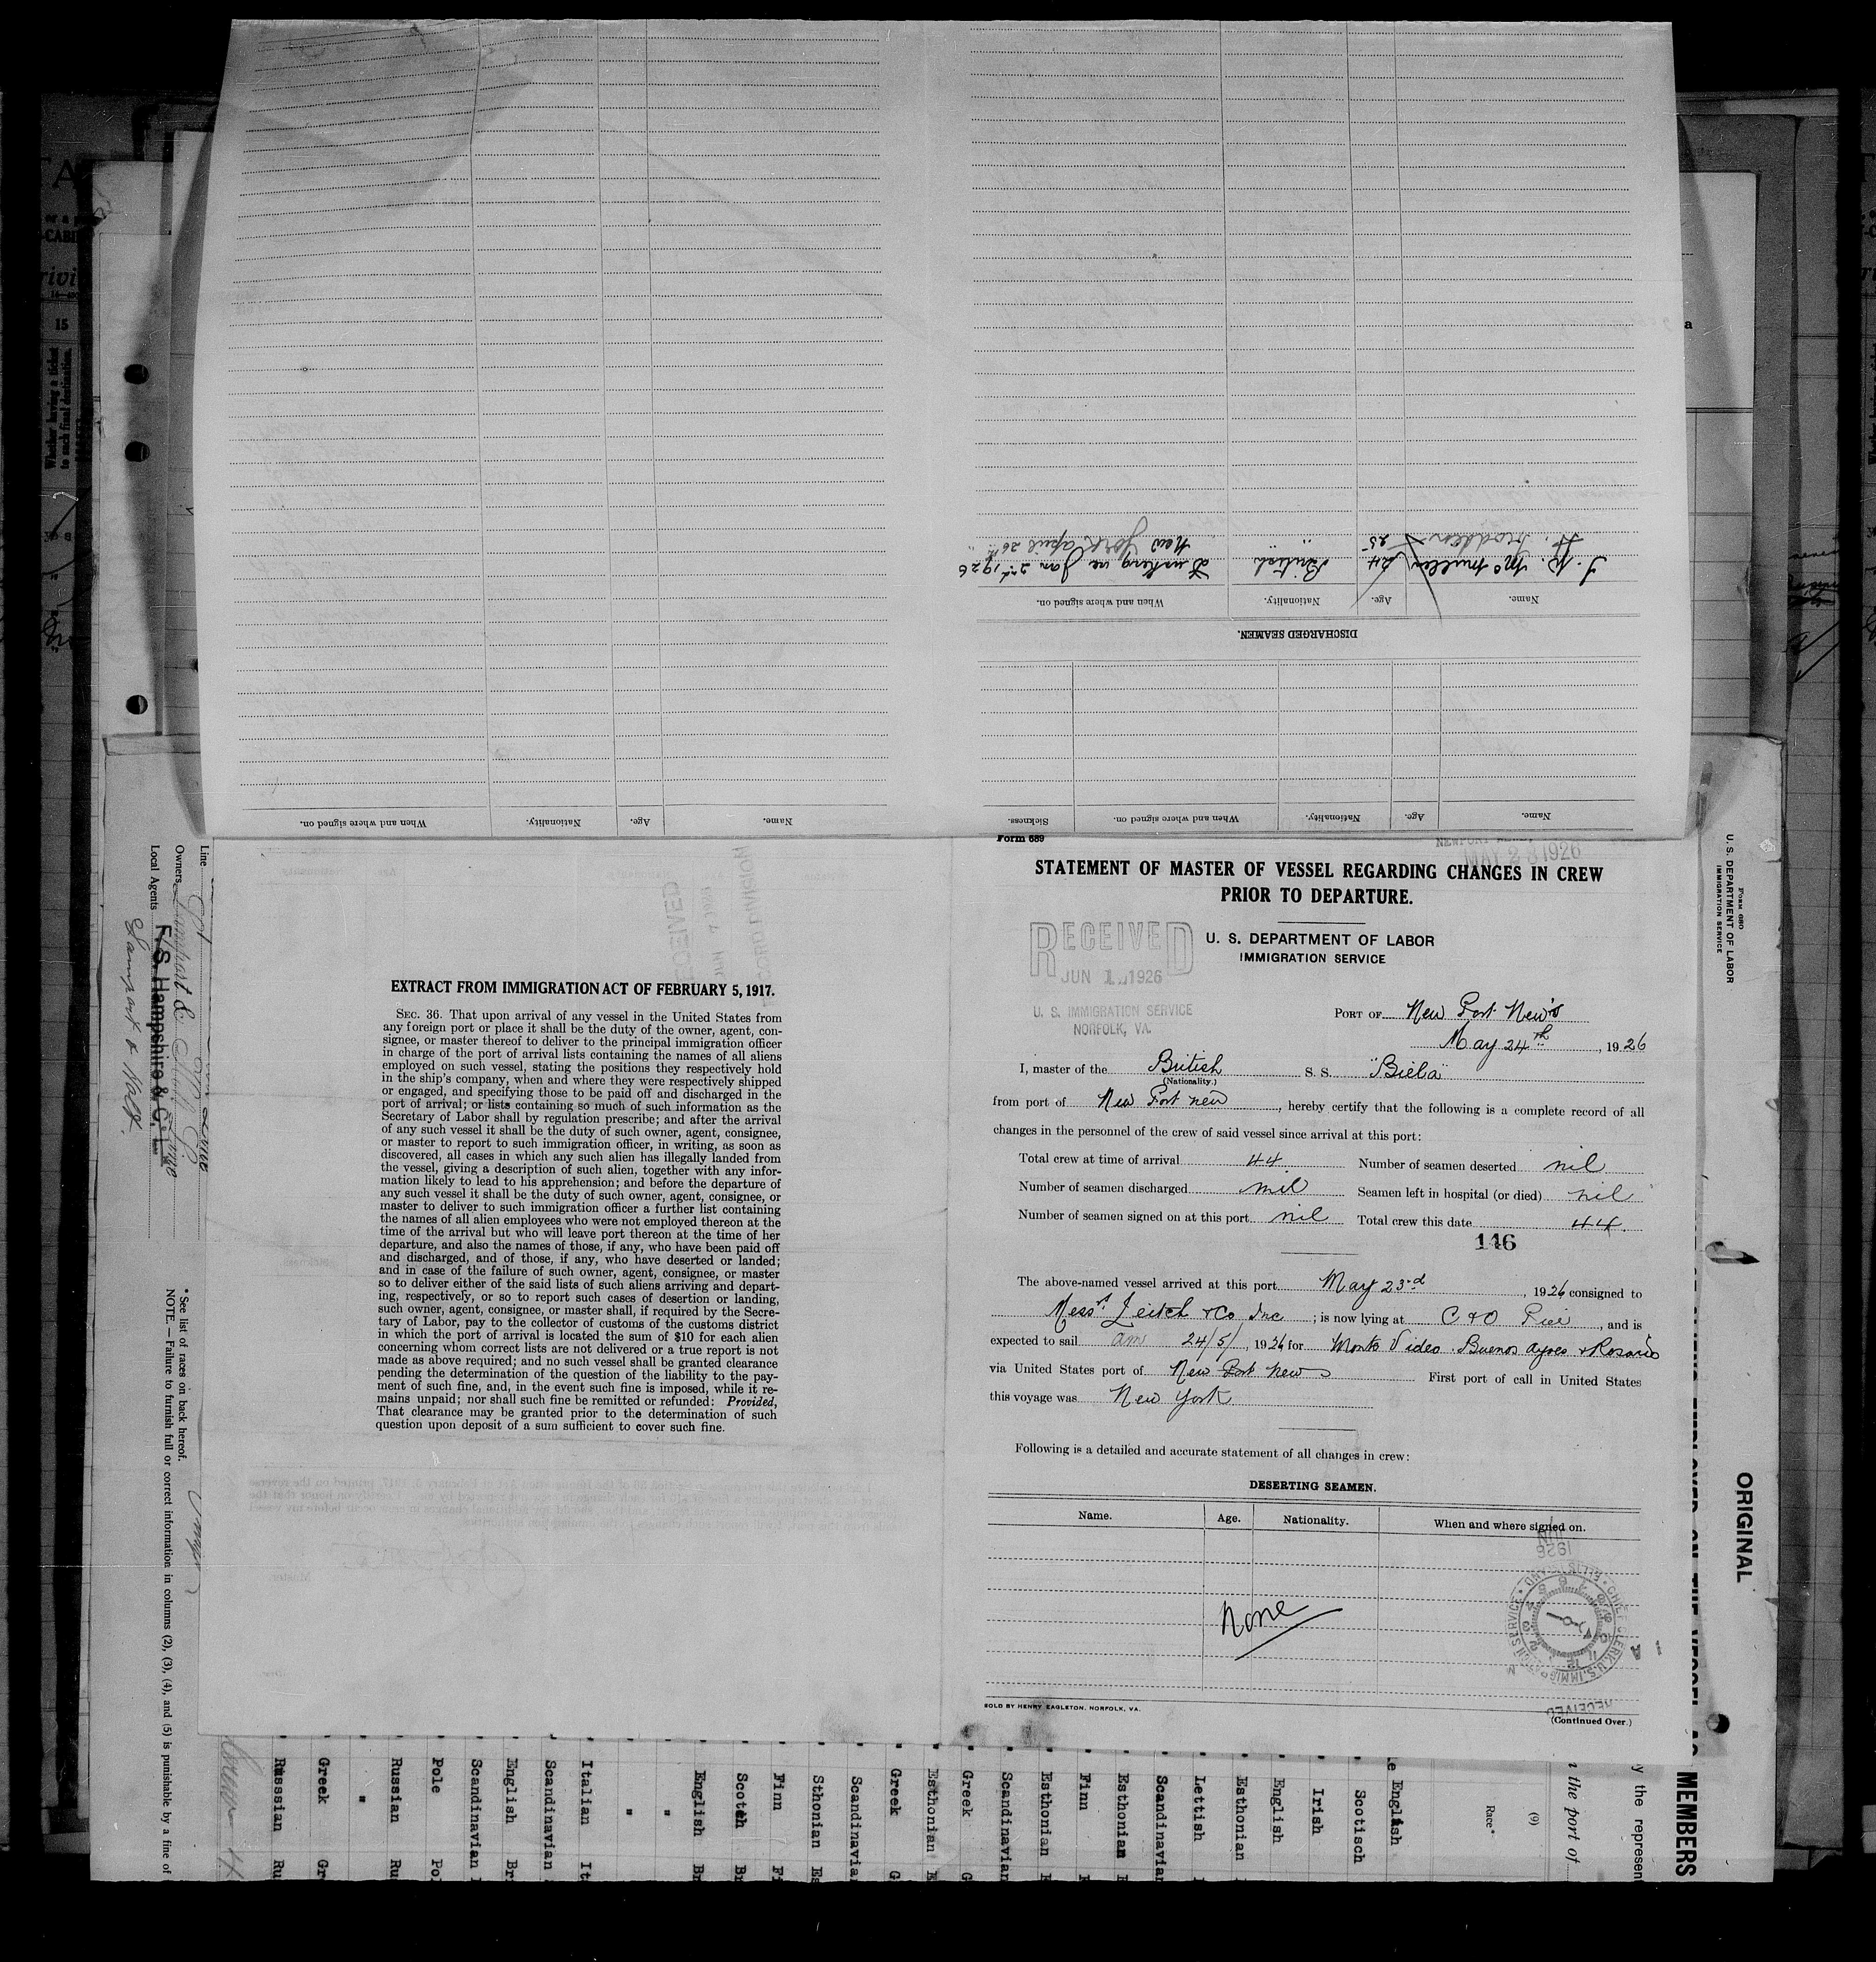 Name. Age. Nationality. When and where signed on. Sickness.
DISCHARGED SEAMEN.
Name. Age. Nationality. When and where signed on.
J. R. McMullen 24 British Jan 2nd 1926
H. Madden 25 " New York April 26th "
Name. Age. Nationality. When and where signed on.
EXTRACT FROM IMMIGRATION ACT OF FEBRUARY 5, 1917.
SEC. 36. That upon arrival of any vessel in the United States from
any foreign port or place it shall be the duty of the owner, agent, con-
signee, or master thereof to deliver to the principal immigration officer
in charge of the port of arrival lists containing the names of all aliens
employed on such vessel, stating the positions they respectively hold
in the ship's company, when and where they were respectively shipped
or engaged, and specifying those to be paid off and discharged in the
port of arrival; or lists containing so much of such information as the
Secretary of Labor shall by regulation prescribe; and after the arrival
of any such vessel it shall be the duty of such owner, agent, consignee,
or master to report to such immigration officer, in writing, as soon as
discovered, all cases in which any such alien has illegally landed from
the vessel, giving a description of such alien, together with any infor-
mation likely to lead to his apprehension; and before the departure of
any such vessel it shall be the duty of such owner, agent, consignee, or
master to deliver to such immigration officer a further list containing
the names of all alien employees who were not employed thereon at the
time of the arrival but who will leave port thereon at the time of her
departure, and also the names of those, if any, who have been paid off
and discharged, and of those, if any, who have deserted or landed;
and in case of the failure of such owner, agent, consignee, or master
so to deliver either of the said lists of such aliens arriving and depart-
ing, respectively, or so to report such cases of desertion or landing,
such owner, agent, consignee, or master shall, if required by the Secre-
tary of Labor, pay to the collector of customs of the customs district
in which the port of arrival is located the sum of $10 for each alien
concerning whom correct lists are not delivered or a true report is not
made as above required; and no such vessel shall be granted clearance
pending the determination of the question of the liability to the pay-
ment of such fine, and, in the event such fine is imposed, while it re-
mains unpaid; nor shall such fine be remitted or refunded: Provided,
That clearance may be granted prior to the determination of such
question upon deposit of a sum sufficient to cover such fine.
Form 689
MAY 23 1926
STATEMENT OF MASTER OF VESSEL REGARDING CHANGES IN CREW
PRIOR TO DEPARTURE.
RECEIVED
JUN 1 1926
U. S. IMMIGRATION SERVICE
NORFOLK, VA.
U. S. DEPARTMENT OF LABOR
IMMIGRATION SERVICE
PORT OF New Port New's
May 24th, 1926
I, master of the British S. S. "Biela"
(Nationality.)
from port of New Port new, hereby certify that the following is a complete record of all
changes in the personnel of the crew of said vessel since arrival at this port:
Total crew at time of arrival 44. Number of seamen deserted nil
Number of seamen discharged nil Seamen left in hospital (or died) nil
Number of seamen signed on at this port nil Total crew this date 44.
146
The above-named vessel arrived at this port May 23rd, 1926 consigned to
Messrs. Leitch & Co Inc; is now lying at C & O Pier, and is
expected to sail am 24/5/, 1926 for Monte Video. Buenos Ayres & Rosario
via United States port of New Port News First port of call in United States
this voyage was New York
Following is a detailed and accurate statement of all changes in crew:
DESERTING SEAMEN.
Name. Age. Nationality. When and where signed on.
None
SOLD BY HENRY EAGLETON, NORFOLK, VA.
(Continued Over.)
RECEIVED
Line
Owners Lamport & Holt Line
Local Agents F. S. Hampshire & Co. Inc
Lamport & Holt.
* See list of races on back hereof.
NOTE.—Failure to furnish full or correct information in columns (2), (3), (4), and (5) is punishable by a fine of
FORM 680
U. S. DEPARTMENT OF LABOR
IMMIGRATION SERVICE
ORIGINAL
MEMBERS
the port of
(9)
Race*
English
Scotisch
Irish
English
Esthonian
Lettish
Scandinavian
Esthonian
Finn
Esthonian
Scandinavian
Greek
Esthonian
Greek
Scandinavia
Sthonian
Finn
Scotch
English
"
"
Italian
Scandinavian
English
Scandinavian
Pole
Russian
"
Greek
Russian